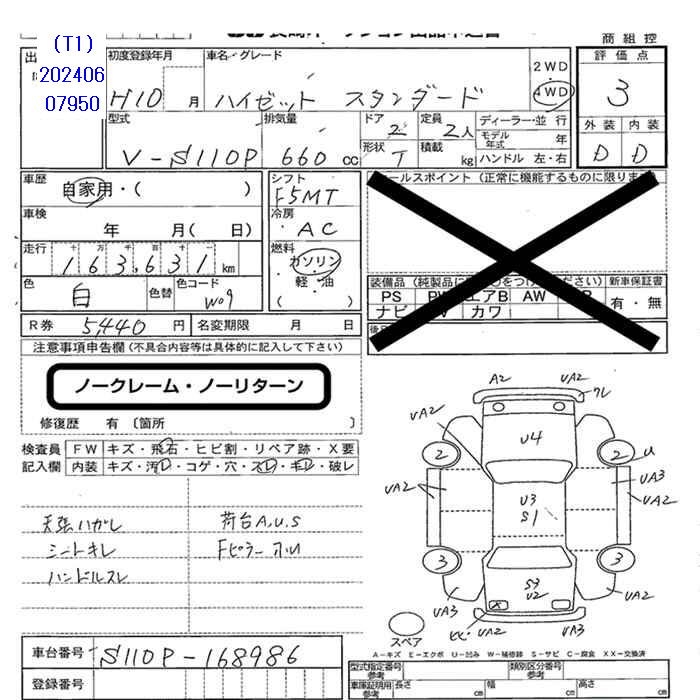 商組控
(T1)
202406
07950
初度登録年月
車名・グレード
2WD
・
4WD
評価点
H10 月
ハイゼット スタンダード
3
型式
排気量
ドア
定員
ディーラー・並 行
外装 内装
V-S110P
660 cc
2
2人
モデル年式 年
D D
形状
積載
T
kg
ハンドル 左・右
車歴
自家用・( )
シフト
F5MT
セールスポイント(正常に機能するものに限ります)
車検
年 月( 日)
冷房
AC
走行
十 万 千 百 十 一
163,631 km
燃料
ガソリン
軽・油
( )
色
白
色替
色コード
W09
新車保証書
PS エアB AW
有・無
ナビ カワ
R券 5,440 円
名変期限 月 日
注意事項申告欄(不具合内容等は具体的に記入して下さい)
ノークレーム・ノーリターン
修復歴 有〔箇所 〕
検査員記入欄
FW キズ・飛石・ヒビ割・リペア跡・X要
内装 キズ・汚レ・コゲ・穴・スレ・キレ・破レ
天張ハガレ
荷台A,U,S
シートキレ
ハンドルスレ
A2 UA2 ワレ
UA2
U4
2 2
U
UA3
UA2
UA2
U3
S1
3 3
S3
U2
UA3
UA2
UA2
UA3
スペア
A-キズ E-エクボ U-凹み W-補修跡 S-サビ C-腐食 XX-交換済
車台番号 S110P-168986
登録番号
型式指定番号
参考
類別区分番号
参考
車庫証明用
参考
長さ cm 幅 cm 高さ cm